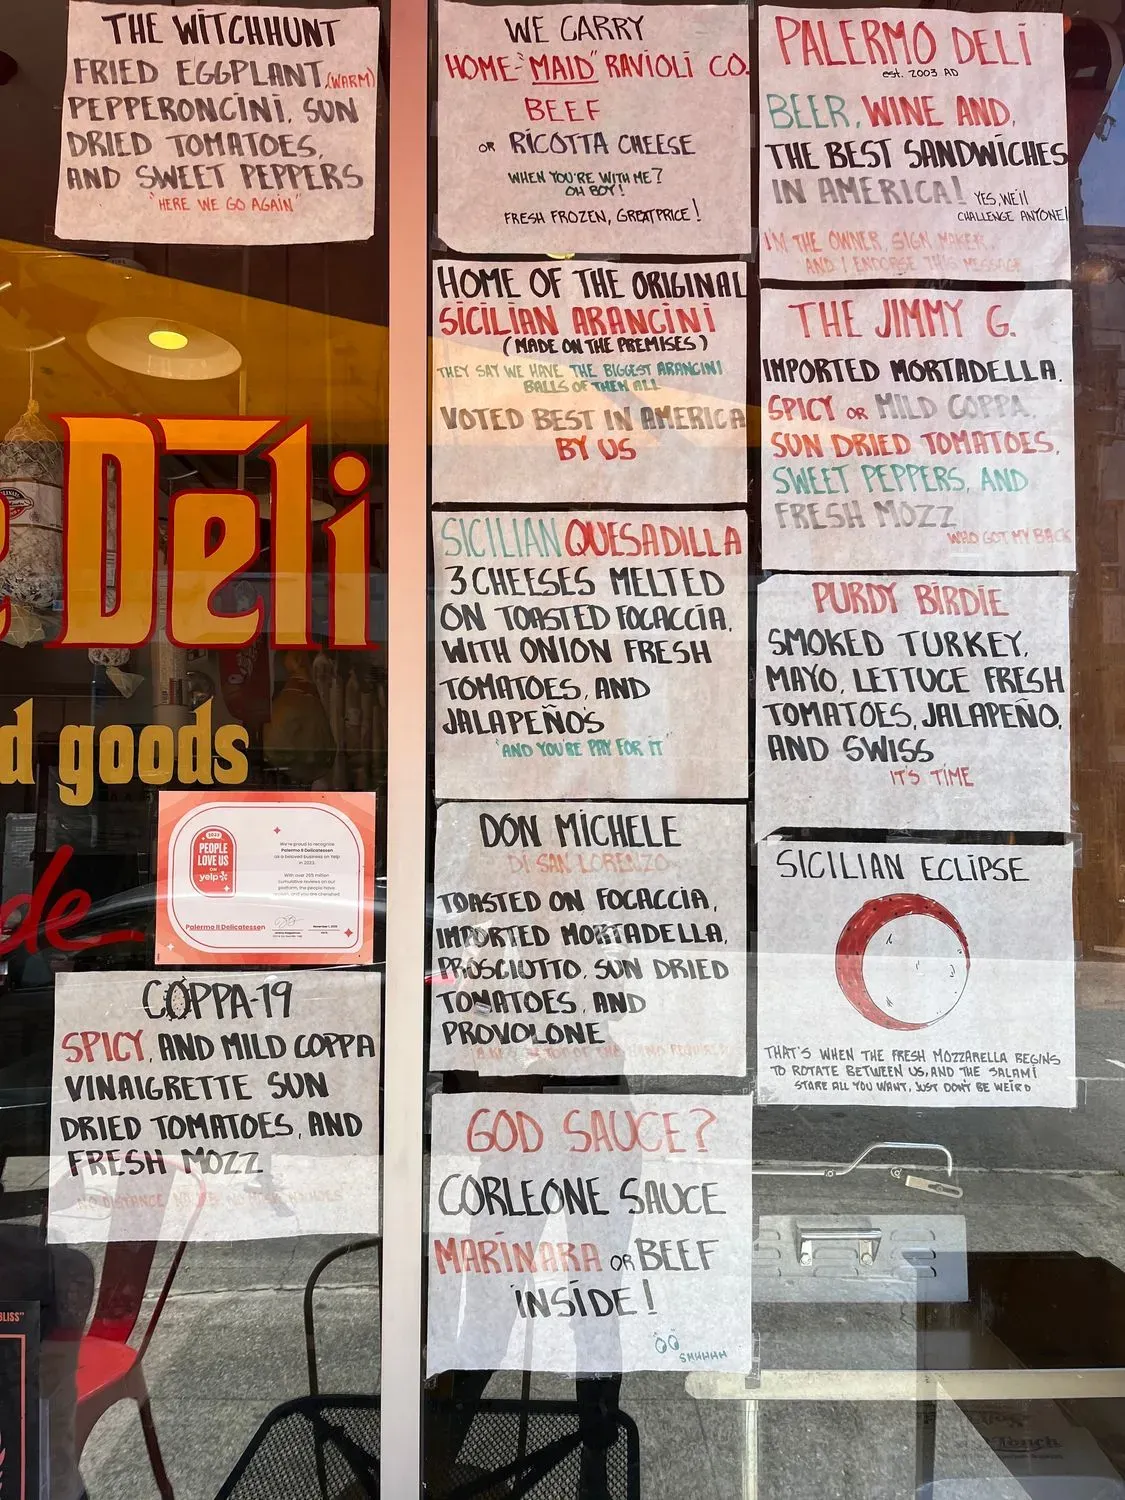 THE WITCHHUNT
FRIED EGGPLANT (WARM)
PEPPERONCINI, SUN
DRIED TOMATOES,
AND SWEET PEPPERS
"HERE WE GO AGAIN"
Deli
d goods
de
2023
PEOPLE
LOVE US
ON
yelp
We're proud to recognize
Palermo II Delicatessen
as a beloved business on Yelp
in 2023.
With over 265 million
cumulative reviews on our
platform, the people have
spoken, and you are cherished
Palermo II Delicatessen
COPPA-19
SPICY, AND MILD COPPA
VINAIGRETTE SUN
DRIED TOMATOES, AND
FRESH MOZZ
NO DISTANCE
BLISS"
WE CARRY
HOME-"MAID" RAVIOLI CO.
BEEF
OR RICOTTA CHEESE
WHEN YOU'RE WITH ME?
OH BOY!
FRESH FROZEN, GREAT PRICE!
HOME OF THE ORIGINAL
SICILIAN ARANCINI
(MADE ON THE PREMISES)
THEY SAY WE HAVE THE BIGGEST ARANCINI
BALLS OF THEM ALL
VOTED BEST IN AMERICA
BY US
SICILIAN QUESADILLA
3 CHEESES MELTED
ON TOASTED FOCACCIA,
WITH ONION FRESH
TOMATOES, AND
JALAPEÑO'S
"AND YOU'RE PAY FOR IT"
DON MICHELE
DI SAN LORENZO
TOASTED ON FOCACCIA,
IMPORTED MORTADELLA,
PROSCIUTTO, SUN DRIED
TOMATOES, AND
PROVOLONE
GOD SAUCE?
CORLEONE SAUCE
MARINARA OR BEEF
INSIDE!
SHHHHH
PALERMO DELI
est. 2003 AD
BEER, WINE AND,
THE BEST SANDWICHES
IN AMERICA! YES, WE'll
CHALLENGE ANYONE!
I'M THE OWNER, SIGN MAKER,
AND I ENDORSE THIS MESSAGE
THE JIMMY G.
IMPORTED MORTADELLA,
SPICY OR MILD COPPA,
SUN DRIED TOMATOES,
SWEET PEPPERS, AND
FRESH MOZZ
WHO GOT MY BACK
PURDY BIRDIE
SMOKED TURKEY,
MAYO, LETTUCE FRESH
TOMATOES, JALAPEÑO,
AND SWISS
IT'S TIME
SICILIAN ECLIPSE
THAT'S WHEN THE FRESH MOZZARELLA BEGINS
TO ROTATE BETWEEN US, AND THE SALAMI
STARE ALL YOU WANT, JUST DON'T BE WEIRD